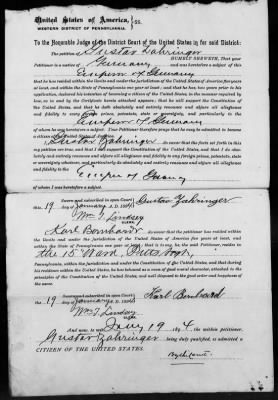 United States of America, ss.
WESTERN DISTRICT OF PENNSYLVANIA.
To the Honorable Judge of the District Court of the United States in for said District:
The Petition of Gustav Zahringer HUMBLY SHEWETH, That your
Petitioner is a native of Germany and was heretofore a subject of the
Emperor of Germany
that he has resided within the limits and under the jurisdiction of the United States of America five years
at least, and within the State of Pennsylvania one year at least; that he has, two years prior to his
application, declared his intention of becoming a citizen of the United States, in the manner required by
law, as to and by the Certificate hereto attached appears; that he will support the Constitution of
the United States, and that he doth absolutely and entirely renounce and abjure all allegiance and
fidelity to any foreign prince, potentate, state or sovereignty whatever, and particularly to the
Emperor of Germany
of whom he was heretofore a subject. Your Petitioner therefore prays that he may be admitted to become
a citizen of the United States.
Gustav Zahringer
my petition are true; and that I will support the Constitution of the United States, and that I do absolutely
and entirely renounce and abjure all allegiance and fidelity to any foreign prince, potentate, state
or sovereignty whatever, and particularly do absolutely and entirely renounce and abjure all allegiance
and fidelity to the
Emperor of Germany
of whom I was heretofore a subject.
Sworn and subscribed in open Court,
this 19 January A. D. 1894 Gustav Zahringer
Wm T. Lindsey
CLERK.
Karl Bernhardt
limits and under the jurisdiction of the United States five years at least, and
within the State of Pennsylvania one year at least; that he is
the 15 Ward, Pittsbgh,
Pennsylvania, within the jurisdiction and under the Constitution of the United States, and that during
his residence within the United States, he has behaved as a man of good moral character, attached to the
principles of the Constitution of the United States, and well disposed to the good order and happiness of
the same.
Sworn and subscribed in open Court,
this 19 January A. D. 1894 Karl Bernhard
Wm T. Lindsey
And now, to wit: Jany 19 1894, the within petitioner,
Gustav Zahringer being duly qualified, is admitted a
CITIZEN OF THE UNITED STATES.
By the Court.